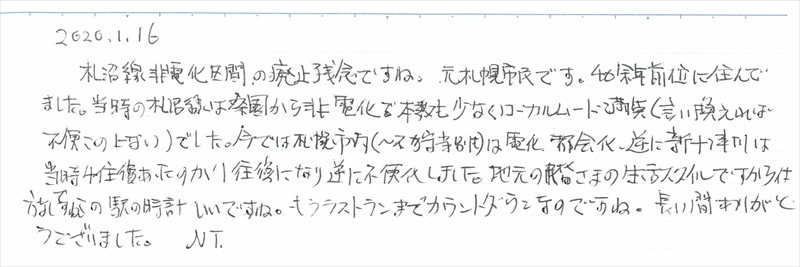 2020.1.16
札沼線非電化区間の廃止残念ですね。元札幌市民です。40余年前位に住んで
ました。当時の札沼線は桑園から非電化で本数も少なくローカルムード満点(言い換えれば
不便この上ない)でした。今では札幌市内(〜石狩当別)は電化、都会化、逆に新十津川は
当時4往復あったのが1往復になり逆に不便化しました。地元の皆さまの生活スタイルですから仕
方ないですね の駅の時計 いいですね。もうラストランまでカウントダウンなのですね。長い間ありがと
うございました。 N.T.